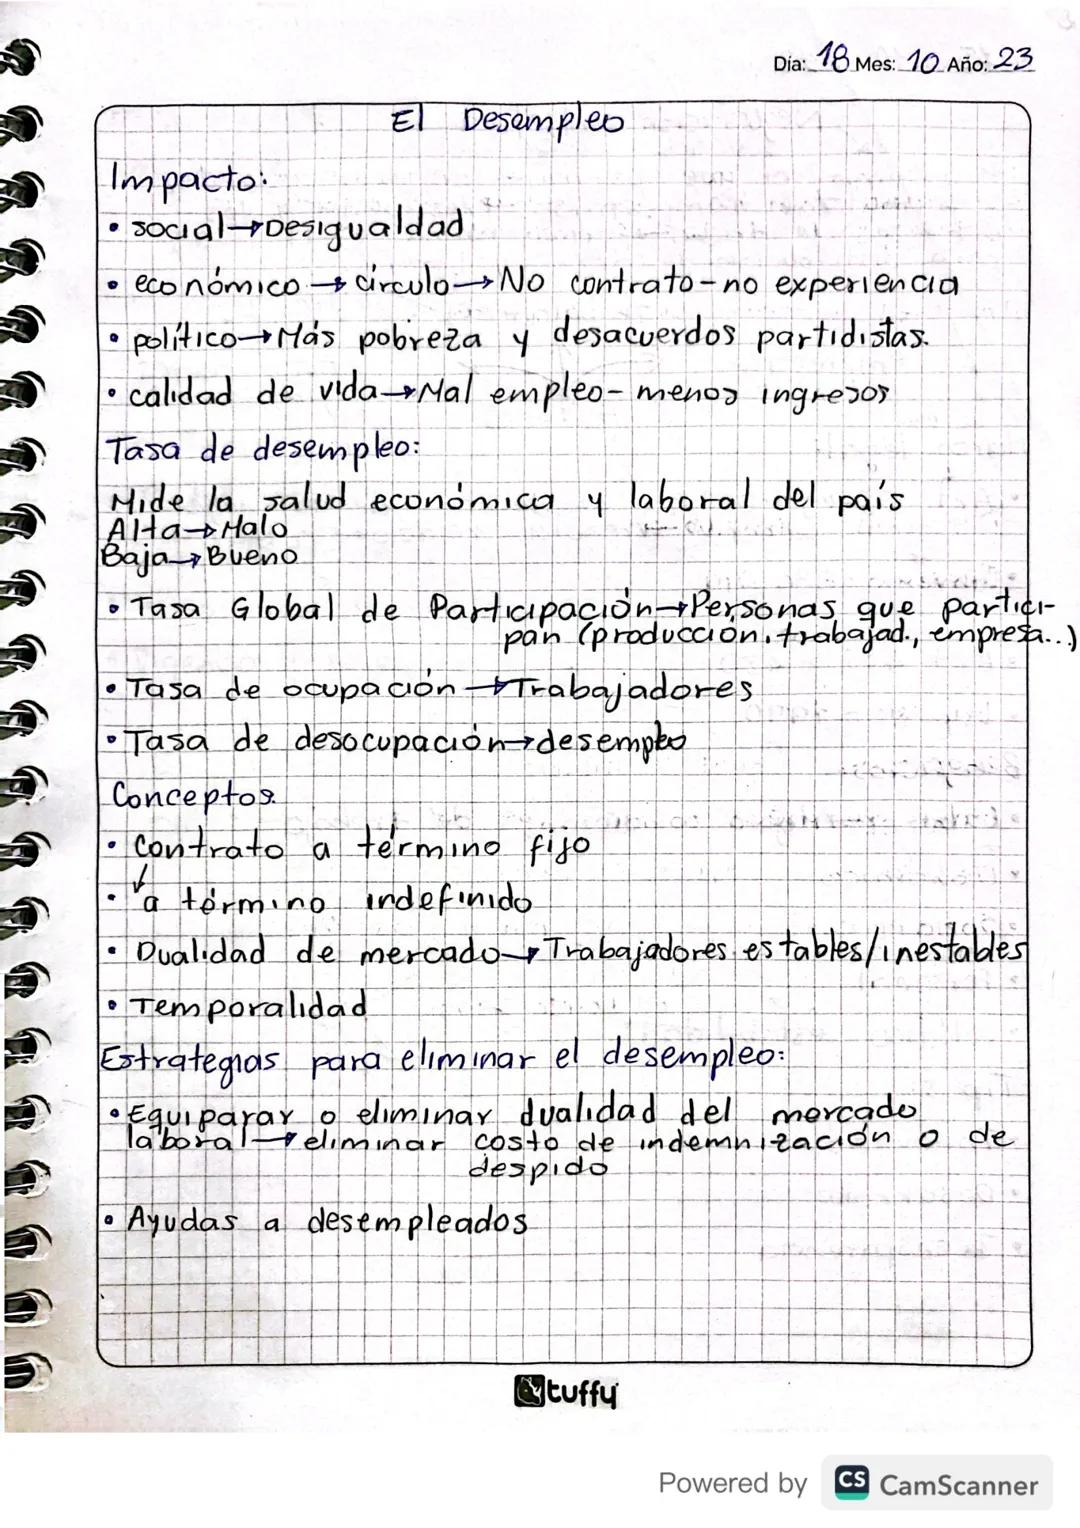 Dia: 18 Mes: 10 Año: 23
El Desempleo
Impacto:
• social→Desigualdad
• económico→círculo→No contrato-no experiencia
• político→Más pobreza y desacuerdos partidistas.
• calidad de vida→Mal empleo-menos ingresos
Tasa de desempleo:
Mide la salud económica y laboral del país
Alta→Malo
Baja→Bueno
• Tasa Global de Participación→Personas que partici-
pan (producción, trabajad., empresa...)
• Tasa de ocupación→Trabajadores
• Tasa de desocupación→desempleo
Conceptos
• Contrato a término fijo
• ↓ a término indefinido
• Dualidad de mercado→Trabajadores estables/inestables
• Temporalidad
Estrategias para eliminar el desempleo:
• Equiparar o eliminar dualidad del mercado
laboral→eliminar costo de indemnización o de
despido
• Ayudas a desempleados
tuffy
Powered by CS CamScanner